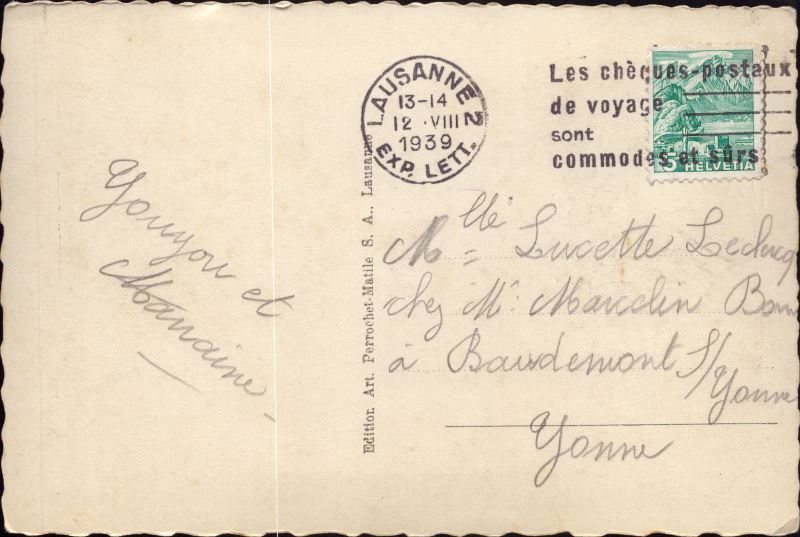 LAUSANNE 2
13-14
12 · VIII
1939
EXP. LETT.
Les chèques-postaux
de voyage
sont
commodes et sûrs
5 HELVETIA
Youyou et
Edition Art. Perrochet-Matile S. A., Lausanne
Mlle Lucette Leclercq
chez Mr Marcelin
à Baudemont s/
Yonne
Yonne